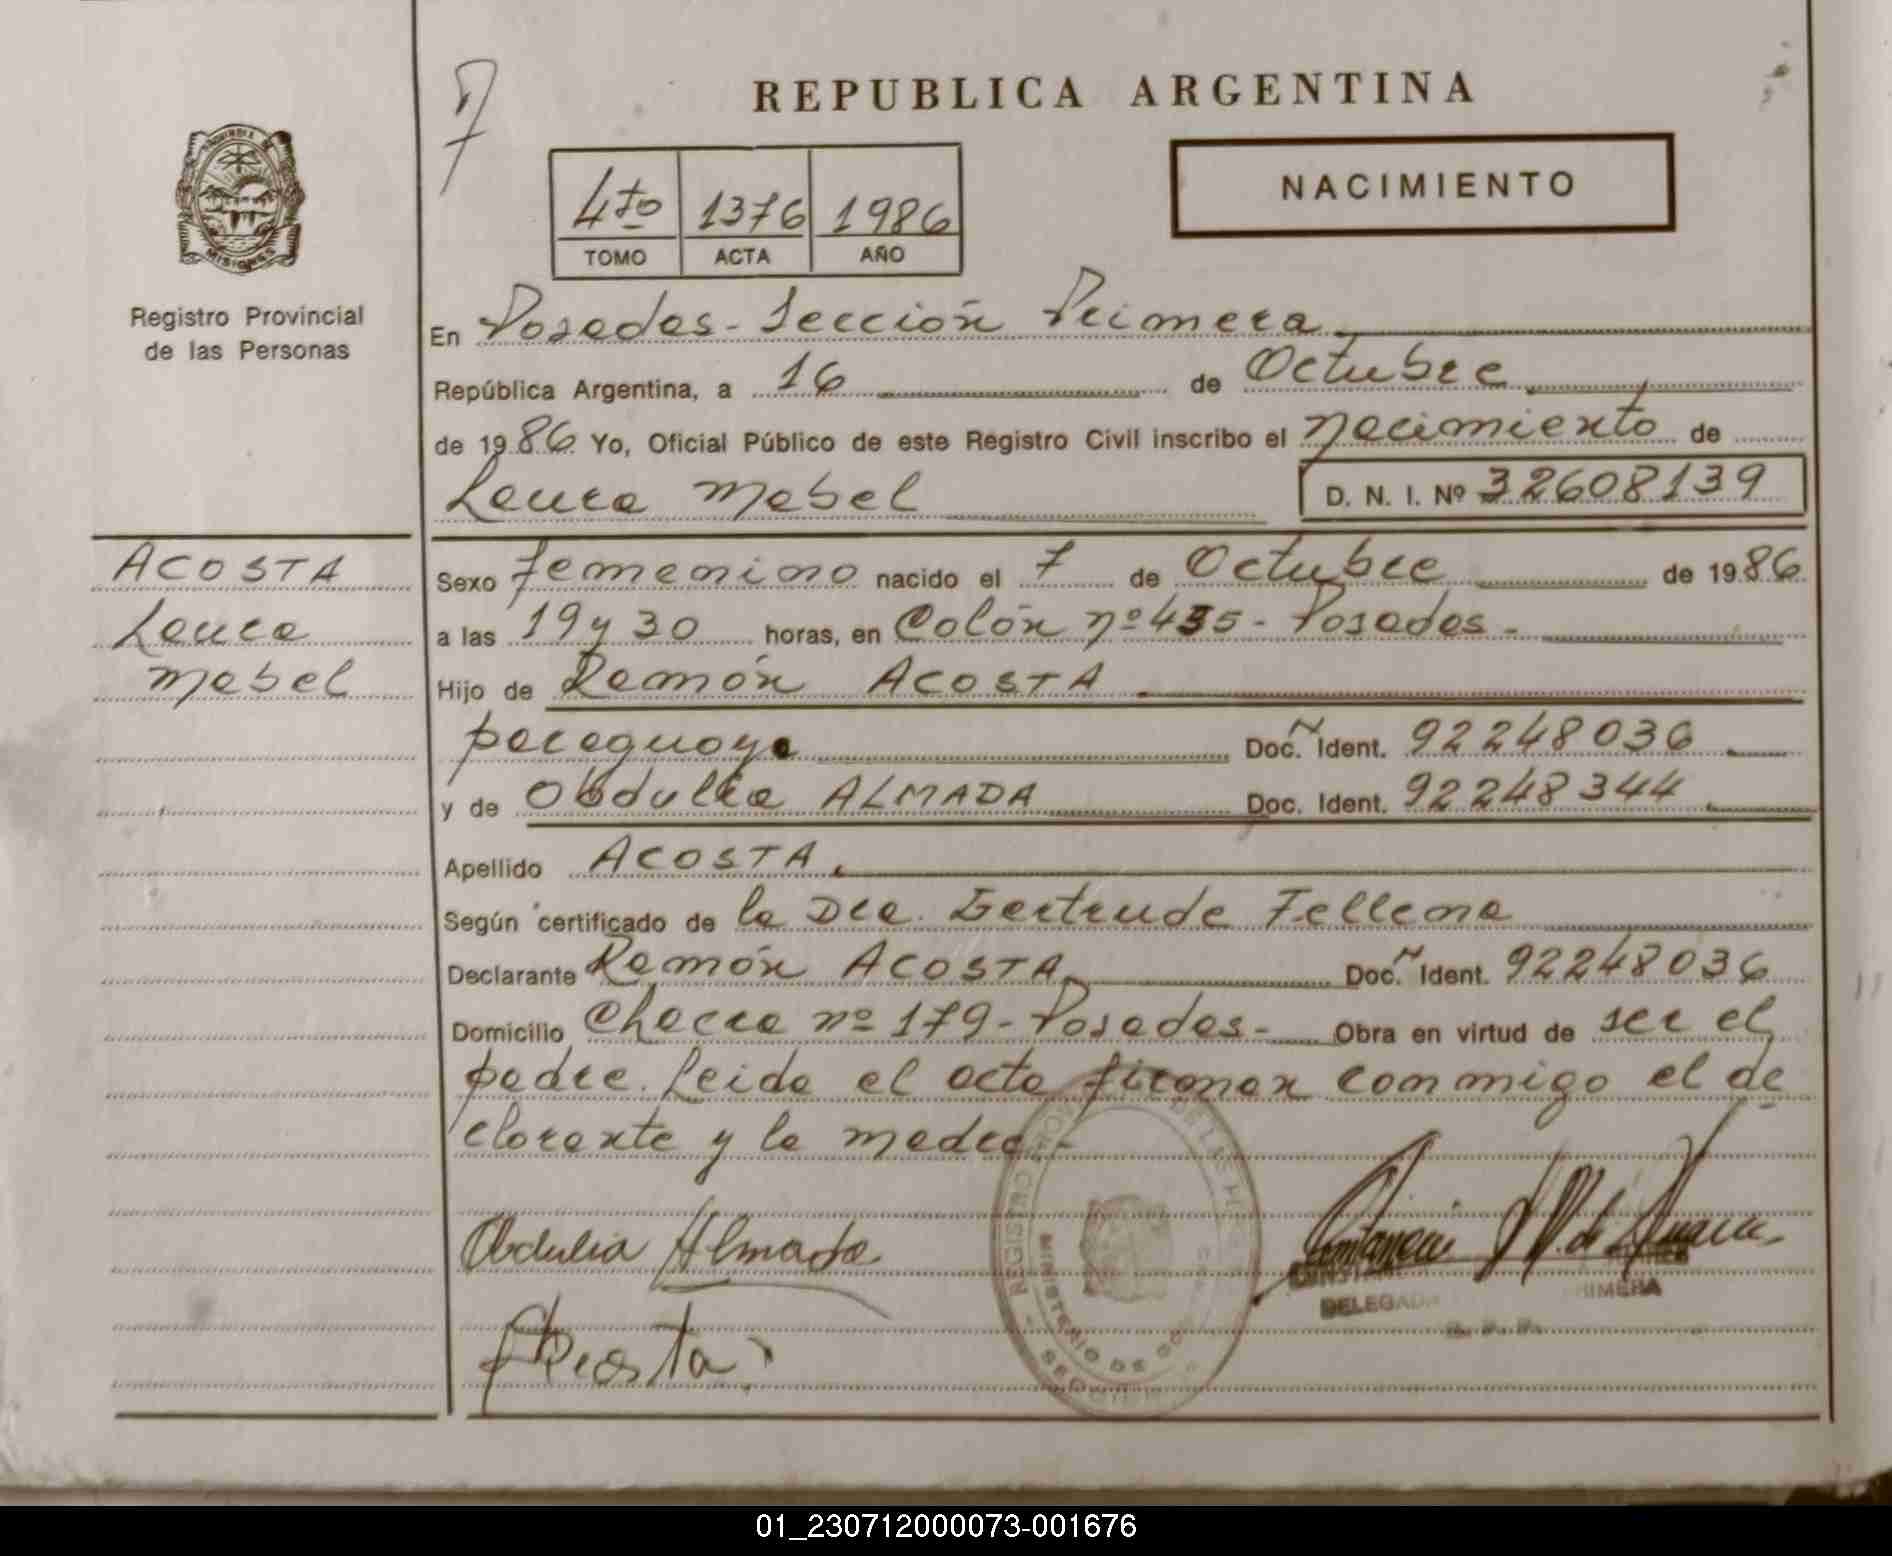 REPUBLICA ARGENTINA
NACIMIENTO
4to 1376 1986
TOMO ACTA AÑO
MISIONES
Registro Provincial
de las Personas
En Posadas - Sección Primera
República Argentina, a 16 de Octubre
de 1986 Yo, Oficial Público de este Registro Civil inscribo el nacimiento de
Laura Mabel D. N. I. Nº 32608139
ACOSTA
Laura
Mabel
Sexo femenino nacido el 7 de Octubre de 1986
a las 19 y 30 horas, en Colón nº 435 - Posadas -
Hijo de Ramón ACOSTA
paraguaya Doc. Ident. 92248036
y de Obdulia ALMADA Doc. Ident. 92248344
Apellido ACOSTA
Según certificado de la Dra. Gertrude Fellema
Declarante Ramón ACOSTA Doc. Ident. 92248036
Domicilio Chacra nº 179 - Posadas - Obra en virtud de ser el
padre. Leida el acta firman conmigo el de
clarante y la madre -
Obdulia Almada
Acosta
REGISTRO
MINISTERIO DE
DELEGADA
01_230712000073-001676